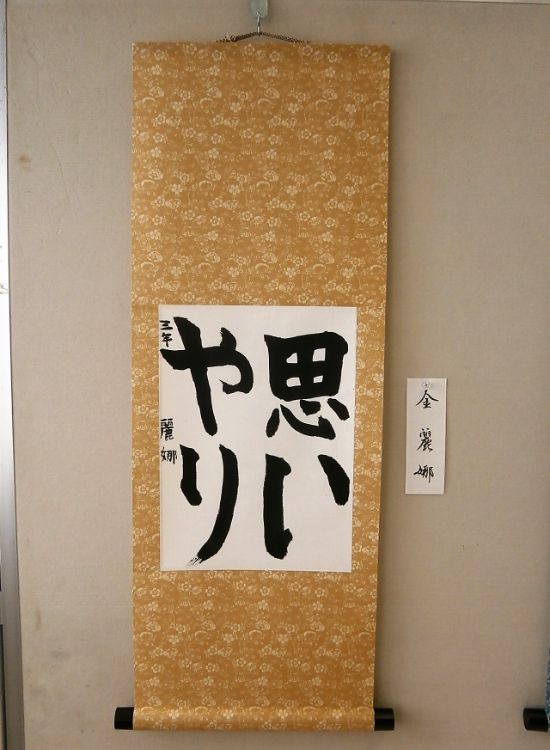 思い
やり
三年 麗娜
金麗娜